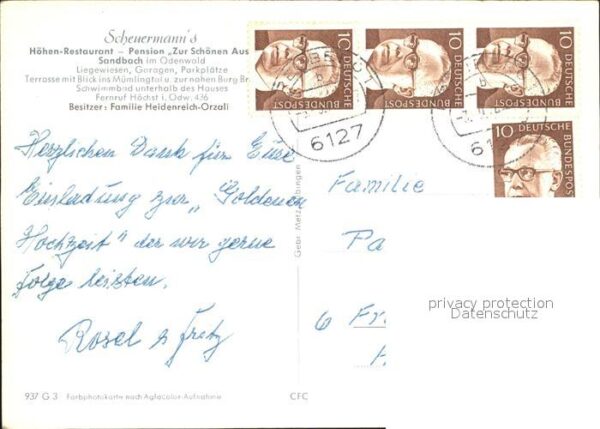 Scheuermann's
Höhen-Restaurant – Pension „Zur Schönen Aus
Sandbach im Odenwald
Liegewiesen, Garagen, Parkplätze
Terrasse mit Blick ins Mümlingtal u. zur nahen Burg Br
Schwimmbad unterhalb des Hauses
Fernruf Höchst i. Odw. 436
Besitzer: Familie Heidenreich-Orzali
10 DEUTSCHE BUNDESPOST
10 DEUTSCHE BUNDESPOST
10 DEUTSCHE BUNDESPOST
10 DEUTSCHE BUNDESPOS
6127
b
612
Herzlichen Dank für Eure
Einladung zur „Goldenen
Hochzeit" der wir gerne
Folge leisten.
Rosel u Fritz
Gebr. Metz, Tübingen
Familie
Pa
6 Fr
privacy protection
Datenschutz
937 G 3 Farbphotokarte nach Agfacolor-Aufnahme
CFC